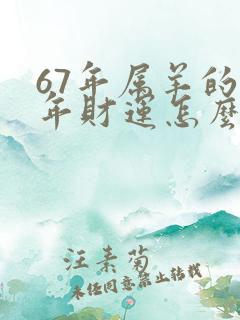 67年属羊的
年财运怎么
汪素菊
未经同意禁止转载